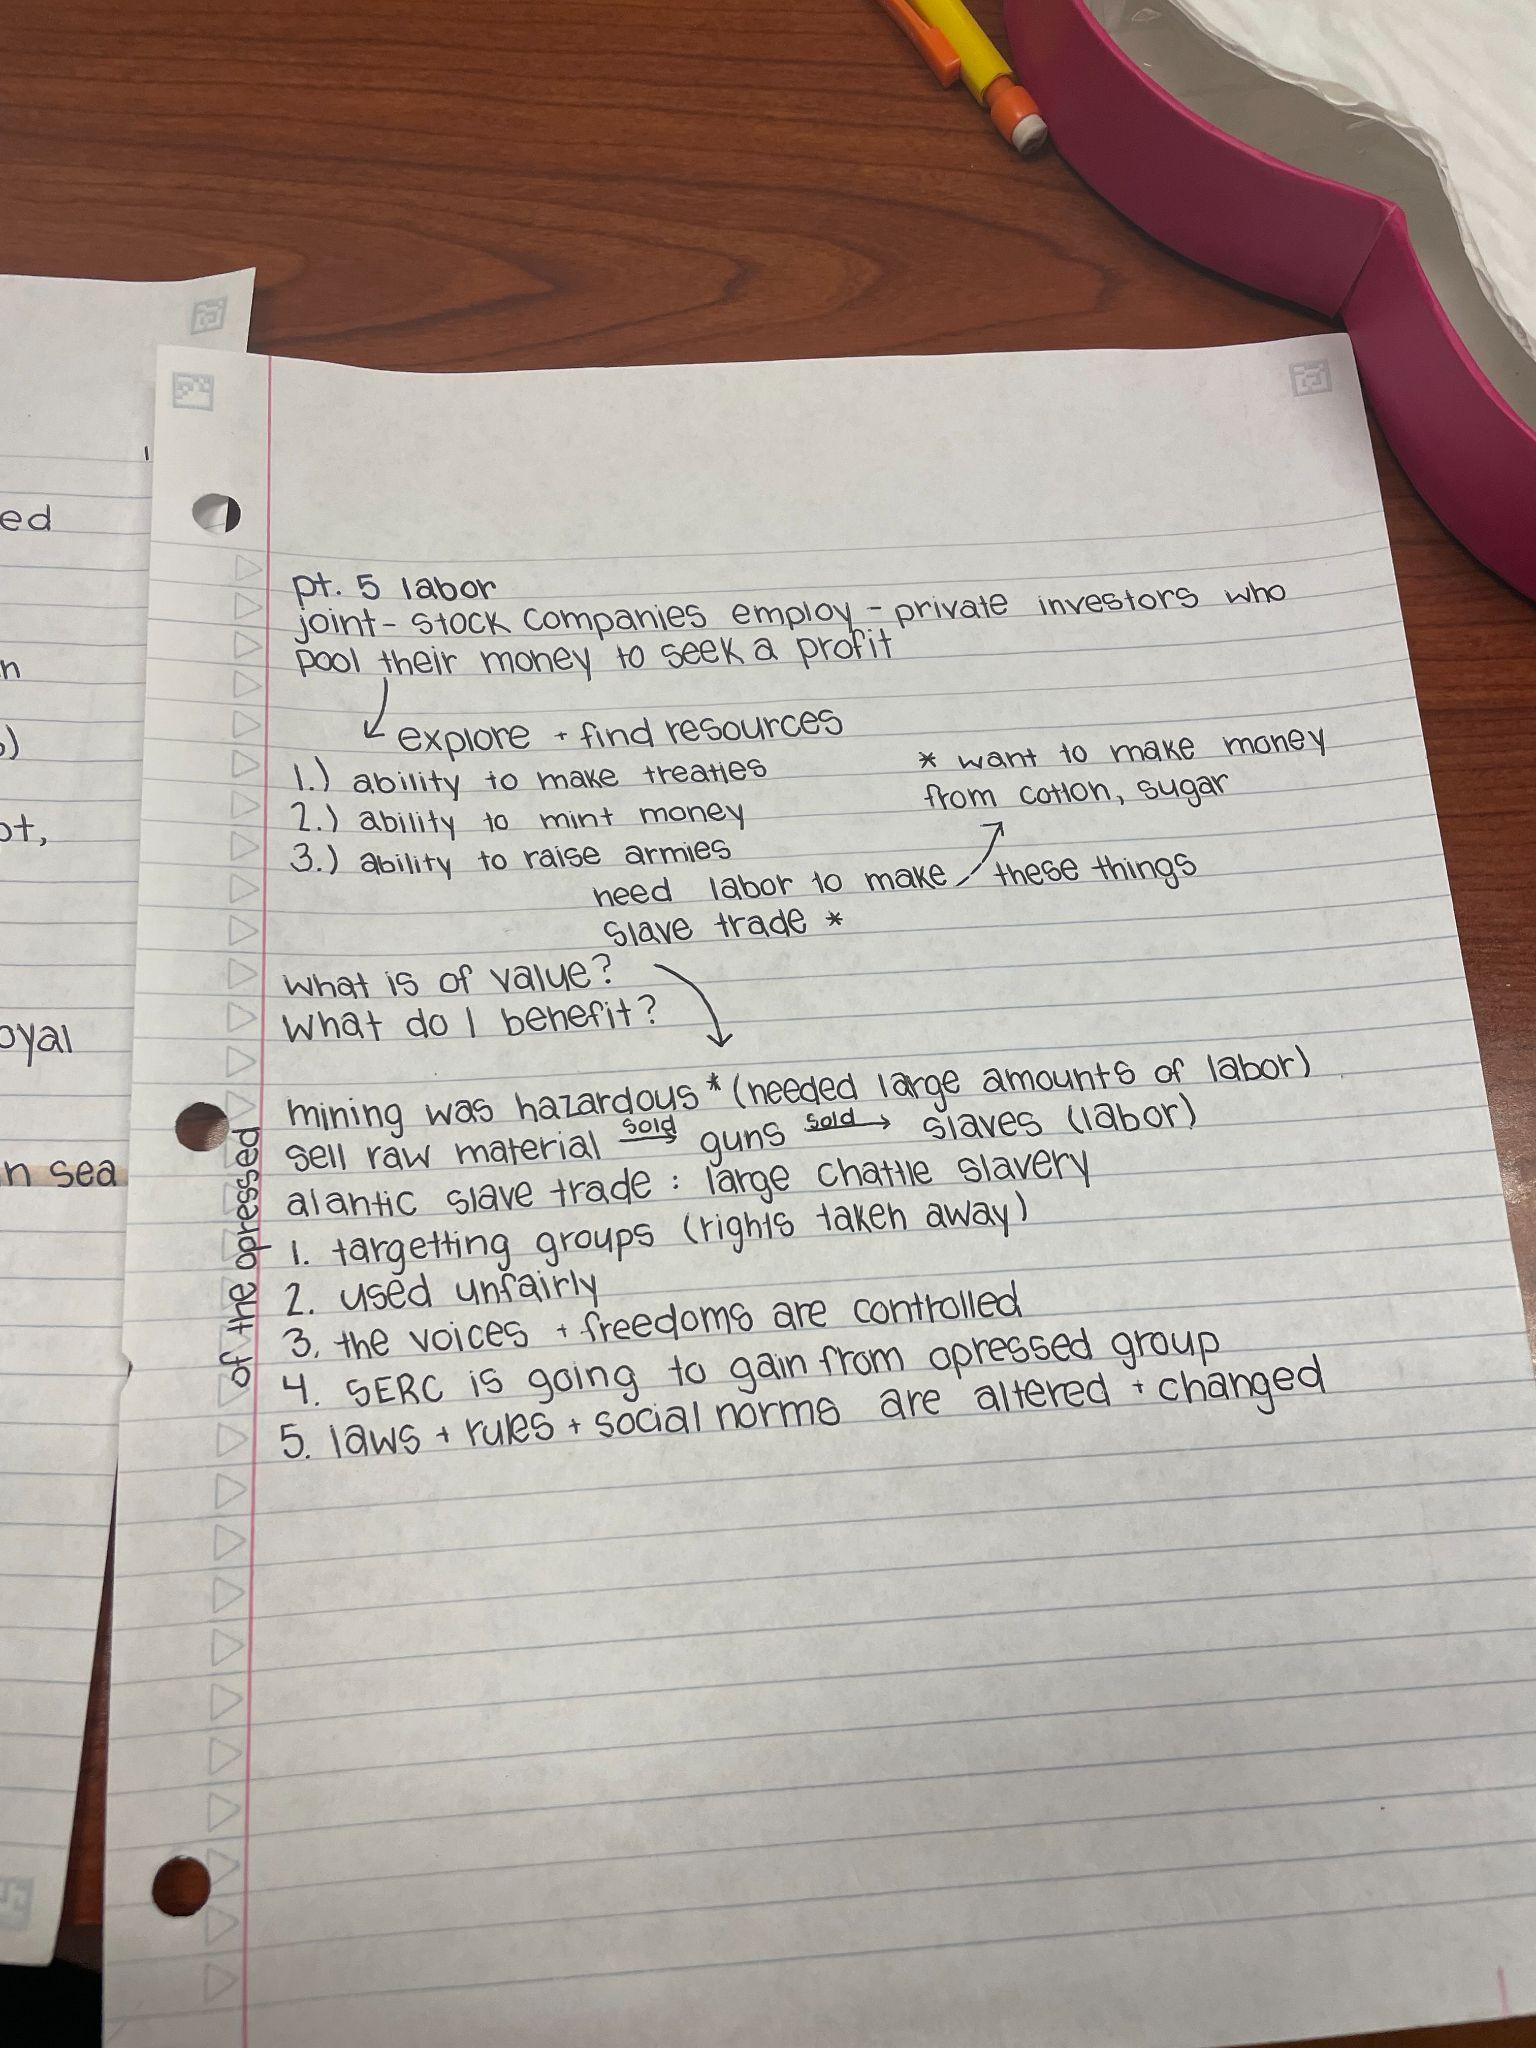 ed
n
ot,
oyal
n sea
pt. 5 labor
joint-stock companies employ - private investors who
pool their money to seek a profit
explore + find resources
1.) ability to make treaties
2.) ability to mint money
3.) ability to raise armies
* want to make money
from cotton, sugar
need labor to make these things
slave trade *
what is of value?
what do I benefit?
mining was hazardous * (needed large amounts of labor)
sell raw material sold guns sold slaves (labor)
alantic slave trade : large chattle slavery
1. targetting groups (rights taken away)
2. used unfairly
3. the voices + freedoms are controlled
of the opressed
4. SERC is going to gain from opressed group
5. laws + rules + social norms are altered + changed